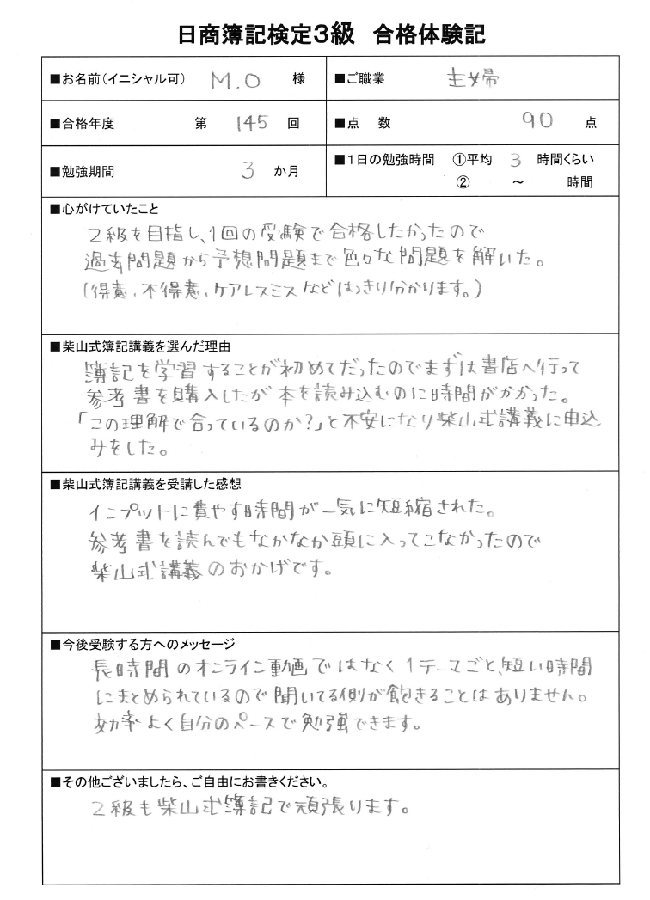 日商簿記検定3級 合格体験記
■お名前(イニシャル可) M.O 様 ■ご職業 主婦
■合格年度 第 145 回 ■点 数 90 点
■勉強期間 3 か月 ■1日の勉強時間 ①平均 3 時間くらい
② ～ 時間
■心がけていたこと
2級を目指し、1回の受験で合格したかったので
過去問題から予想問題まで色々な問題を解いた。
(得意、不得意、ケアレスミスなどはっきり分かります。)
■柴山式簿記講義を選んだ理由
簿記を学習することが初めてだったのでまずは書店へ行って
参考書を購入したが本を読み込むのに時間がかかった。
「この理解で合っているのか?」と不安になり柴山式講義に申込
みをした。
■柴山式簿記講義を受講した感想
インプットに費やす時間が一気に短縮された。
参考書を読んでもなかなか頭に入ってこなかったので
柴山式講義のおかげです。
■今後受験する方へのメッセージ
長時間のオンライン動画ではなく1テーマごと、短い時間
にまとめられているので聞いてる側が飽きることはありません。
効率よく自分のペースで勉強できます。
■その他ございましたら、ご自由にお書きください。
2級も柴山式簿記で頑張ります。